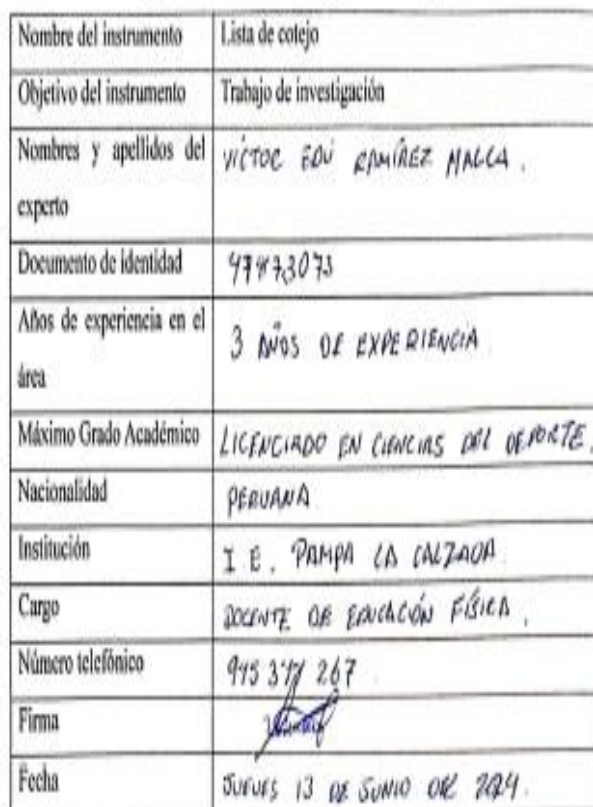 Nombre del instrumento Lista de cotejo
Objetivo del instrumento Trabajo de investigación
Nombres y apellidos del experto VÍCTOR EDÚ RAMÍREZ MALCA.
Documento de identidad
Años de experiencia en el área 3 AÑOS DE EXPERIENCIA
Máximo Grado Académico LICENCIADO EN CIENCIAS DEL DEPORTE.
Nacionalidad PERUANA
Institución I E. PAMPA LA CALZADA
Cargo DOCENTE DE EDUCACIÓN FÍSICA.
Número telefónico 267
Firma
Fecha JUEVES 13 DE JUNIO DEL 2024.